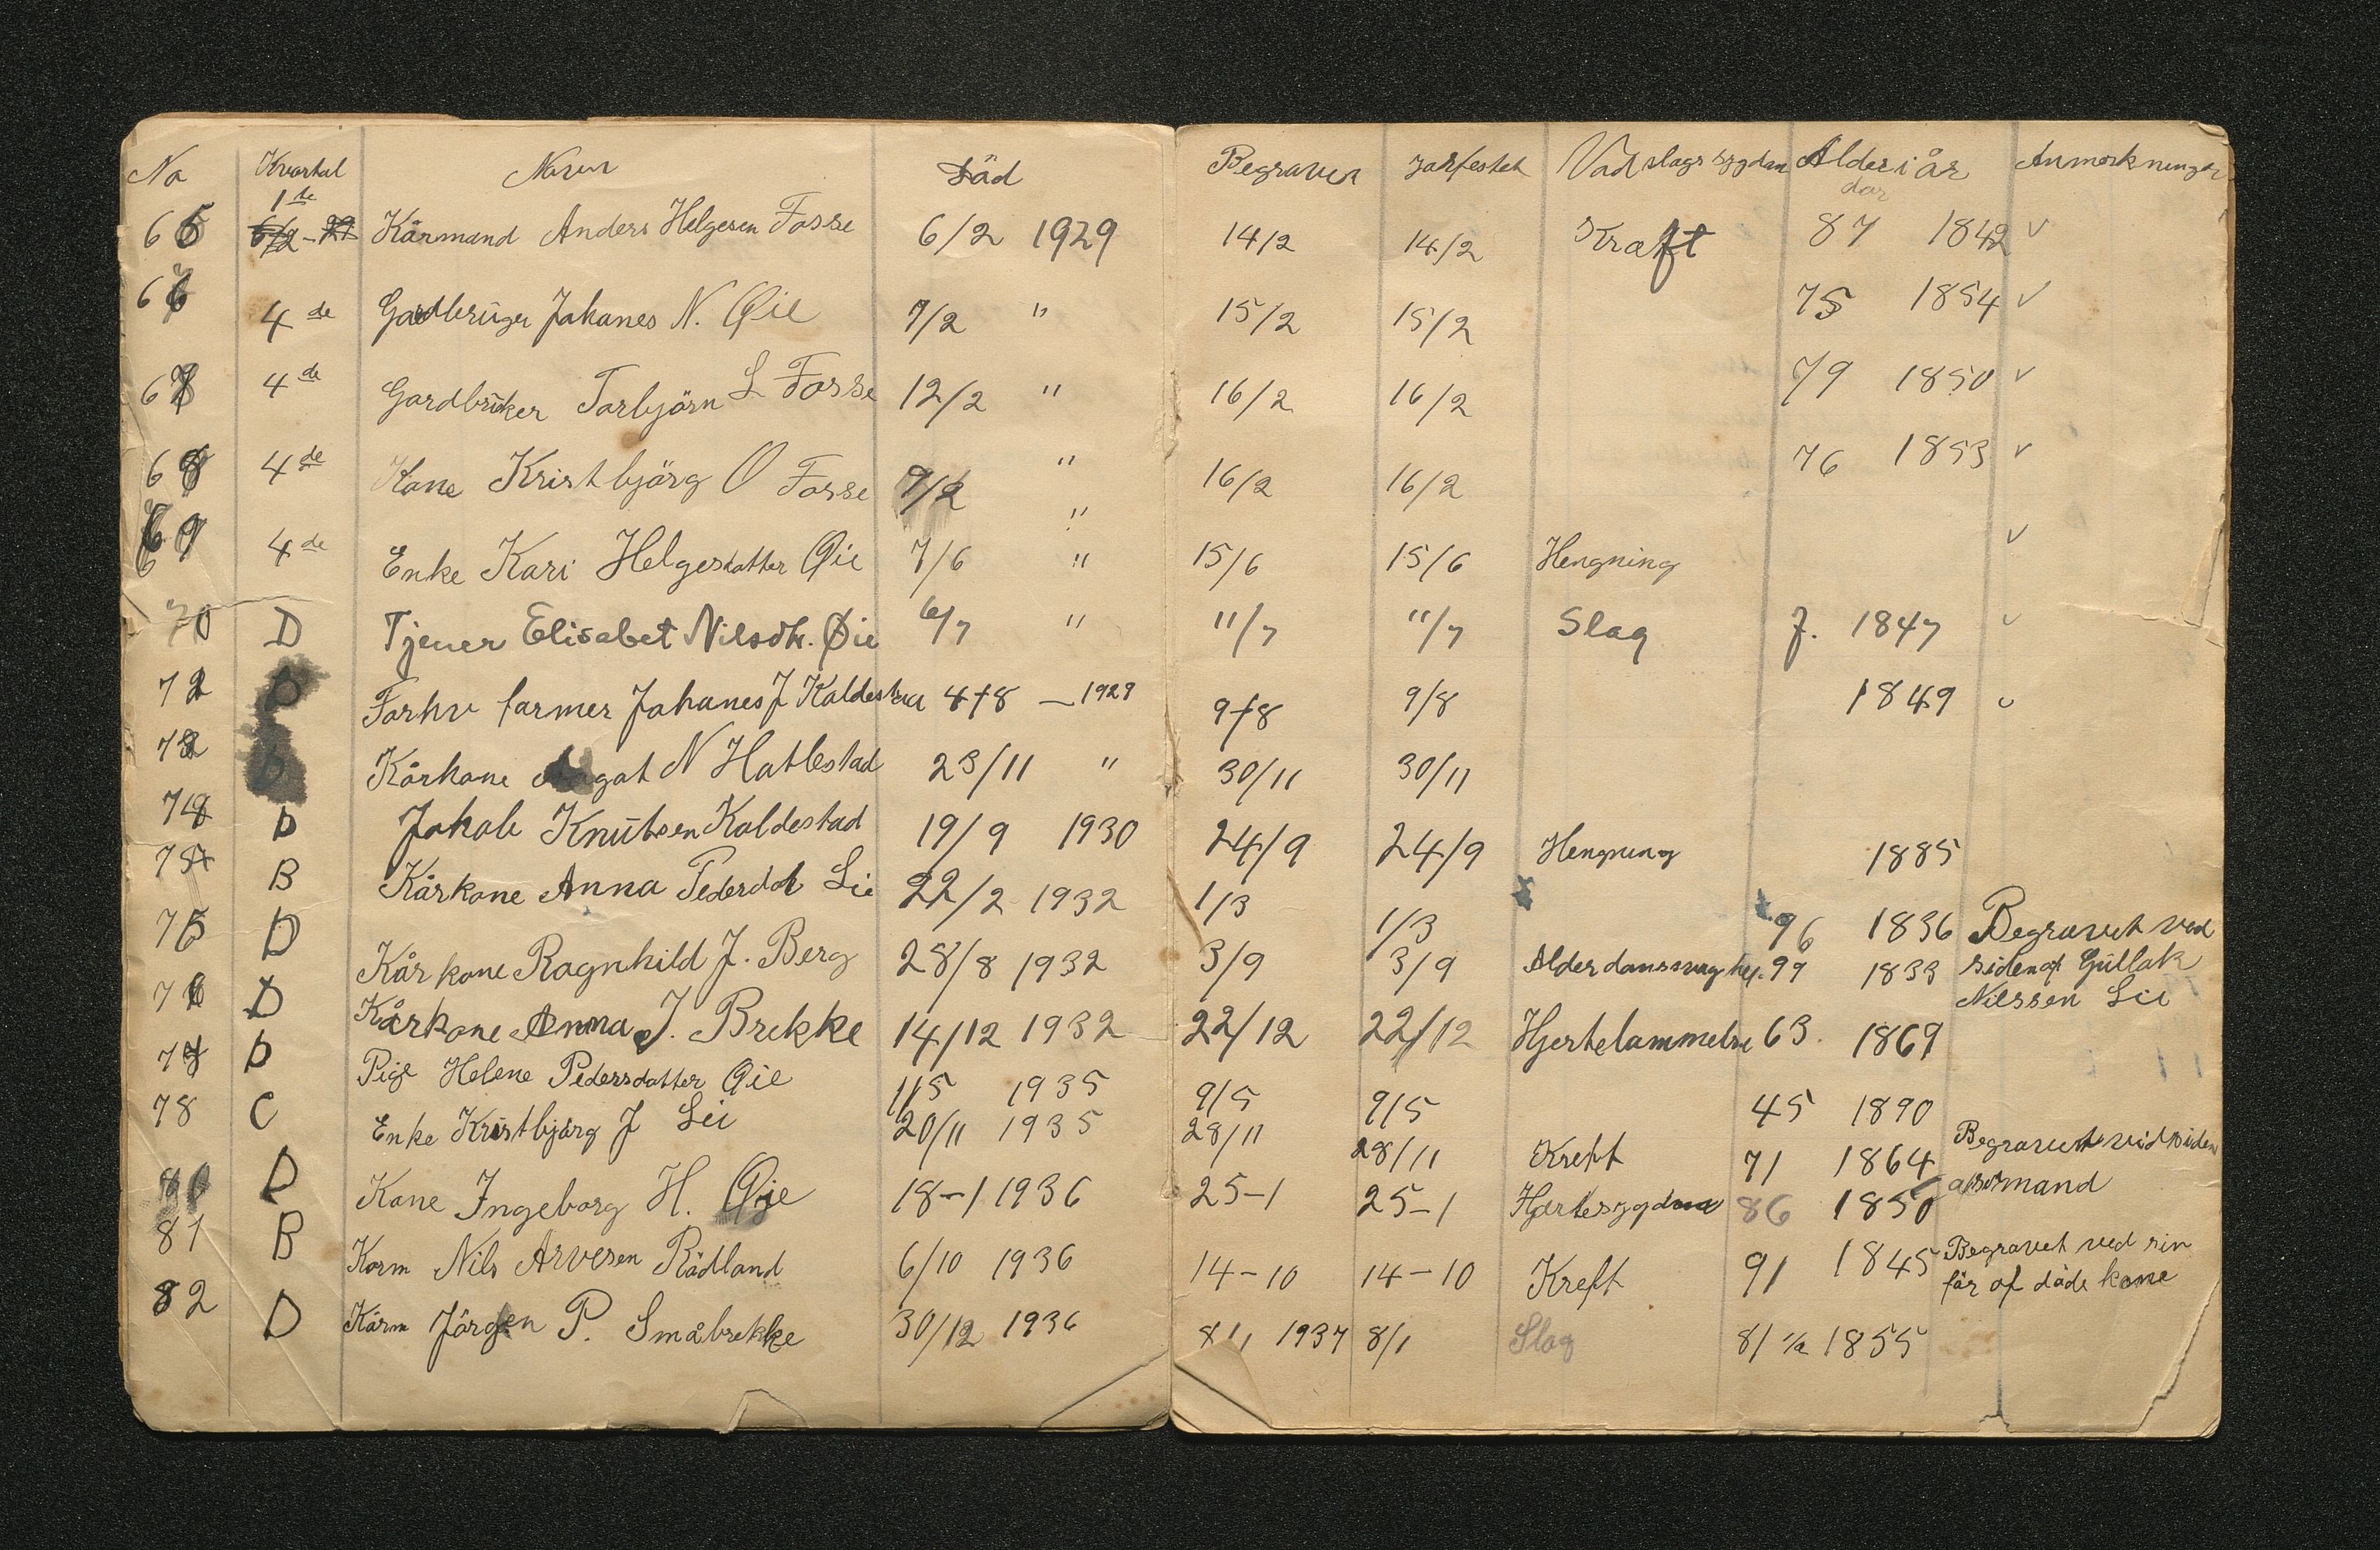 No Kvartal Navn Död Begraven Jordfestet Vad slags sygdom Alder i år Anmerkninger
1ste dar
65 6/2-29 Kårmand Anders Helgesen Fosse 6/2 1929 14/2 14/2 Kræft 87 1842 v
66 4de Gardbrüger Johanes N. Øie 7/2 " 15/2 15/2 75 1854 v
67 4de Gardbrüker Torbjörn L Fosse 12/2 " 16/2 16/2 79 1850 v
68 4de Kone Kristbjörg O Fosse 9/2 " 16/2 16/2 76 1853 v
69 4de Enke Kari Helgesdatter Øie 7/6 " 15/6 15/6 Hengning v
70 D Tjener Elisabet Nilsdtr. Øie 6/7 " 11/7 11/7 Slag f. 1847 v
72 D Forhv farmer Johanes J Kaldestad 4/8 – 1929 9/8 9/8 1849 v
72 Kårkone N Hatlestad 23/11 " 30/11 30/11
74 D Jakob Knütsen Kaldestad 19/9 1930 24/9 24/9 Hengning 1885
75 B Kårkone Anna Pedersdot Lie 22/2 1932 1/3 1/3 96 1836 Begravet ved
75 D Kårkone Ragnhild J. Berg 28/8 1932 3/9 3/9 99 1833 siden af Güllak
76 D Kårkone Anna J. Brekke 14/12 1932 22/12 22/12 Hjertelammelse 63 1869 Nilssen Lie
77 D Pige Helene Pedersdatter Øie 1/5 1935 9/5 9/5 45 1890
78 C Enke Kristbjörg J Lie 20/11 1935 28/11 28/11 Kreft 71 1864 Begravet vid siden
80 D Kone Ingeborg H. Øie 18-1 1936 25-1 25-1 Hjertesygdom 86 1850 af sin mand
81 B Korm Nils Arvesen Rödland 6/10 1936 14-10 14-10 Kreft 91 1845 Begravet ved sin
för af döde kone
82 D Kårm Jörgen P. Småbrekke 30/12 1936 8/1 1937 8/1 Slag 81 1/2 1855